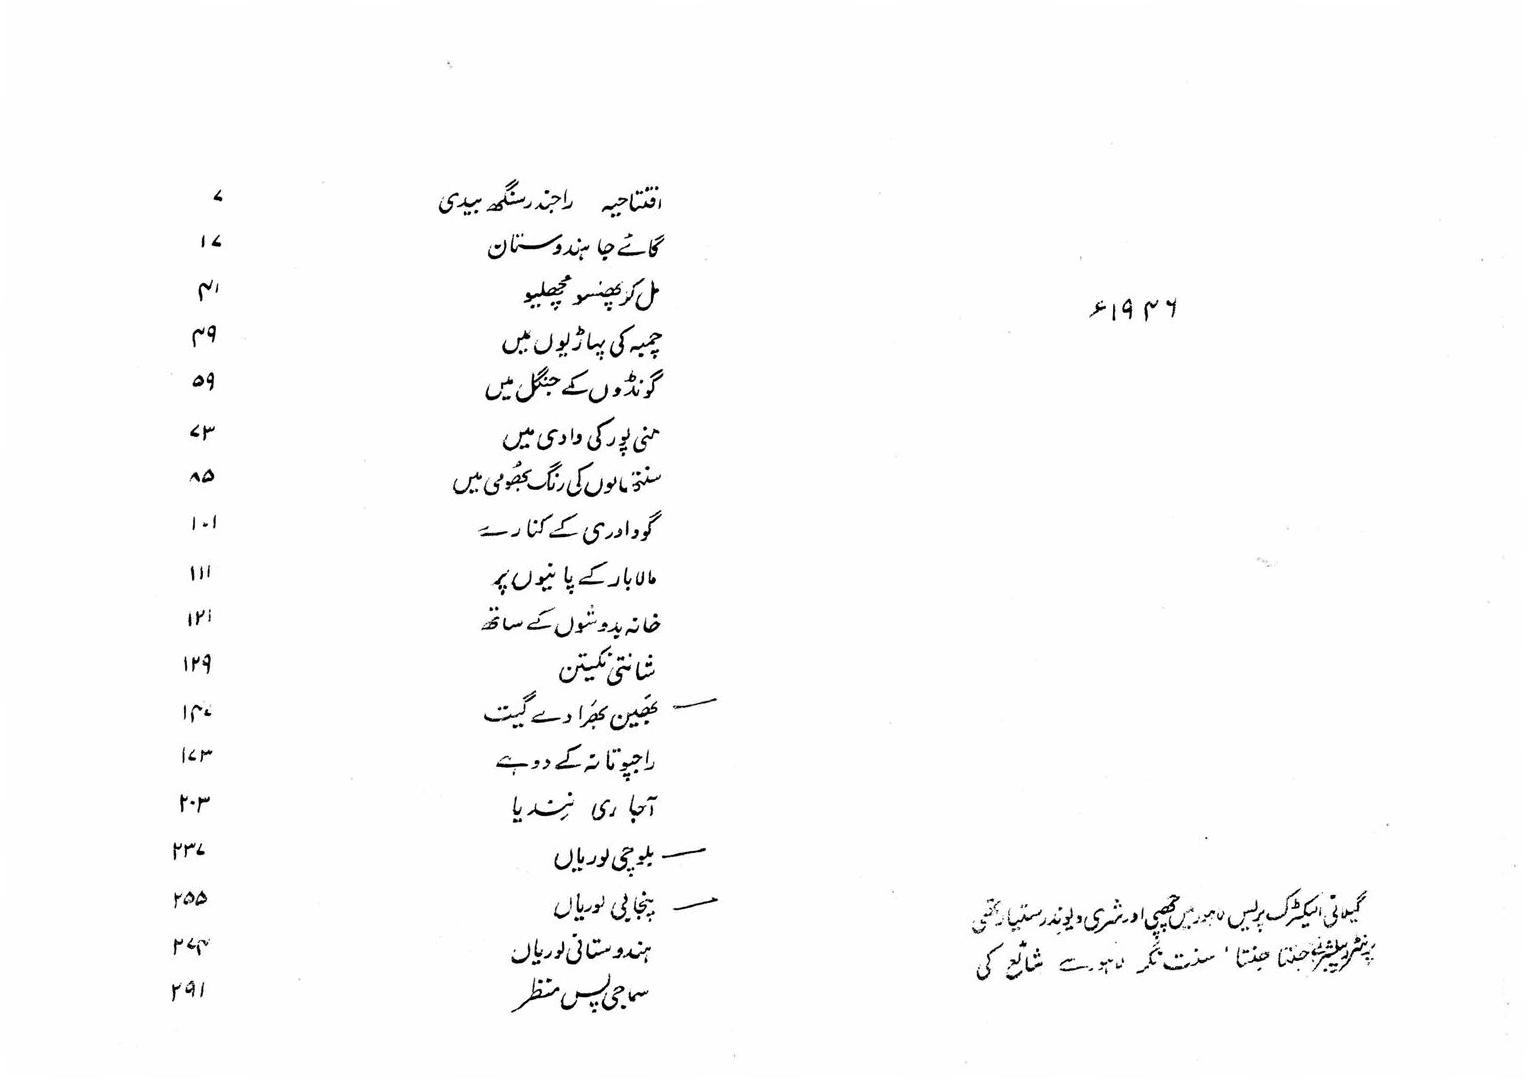 ۱۹۴۶ء
گیلانی الیکٹرک پریس لاہور میں چھپی اور شری دیوندر ستیارتھی
پرنٹر پبلشر نے جنتا جنتا، سنت نگر لاہور سے شائع کی
افتتاحیہ راجندر سنگھ بیدی ۷
گائے جا ہندوستان ۱۷
مل کر پھنسو مچھلیو ۴۱
چمبہ کی پہاڑیوں میں ۴۹
گونڈوں کے جنگل میں ۵۹
منی پور کی وادی میں ۷۳
سنتھالوں کی رنگ بھومی میں ۸۵
گوداوری کے کنارے ۱۰۱
مالابار کے پانیوں پر ۱۱۱
خانہ بدوشوں کے ساتھ ۱۲۱
شانتی نکیتن ۱۲۹
بھین بھرا دے گیت ۱۴۷
راجپوتانہ کے دوہے ۱۷۳
آجا ری نندیا ۲۰۳
بلوچی لوریاں ۲۳۷
پنجابی لوریاں ۲۵۵
ہندوستانی لوریاں ۲۷۴
سماجی پس منظر ۲۹۱